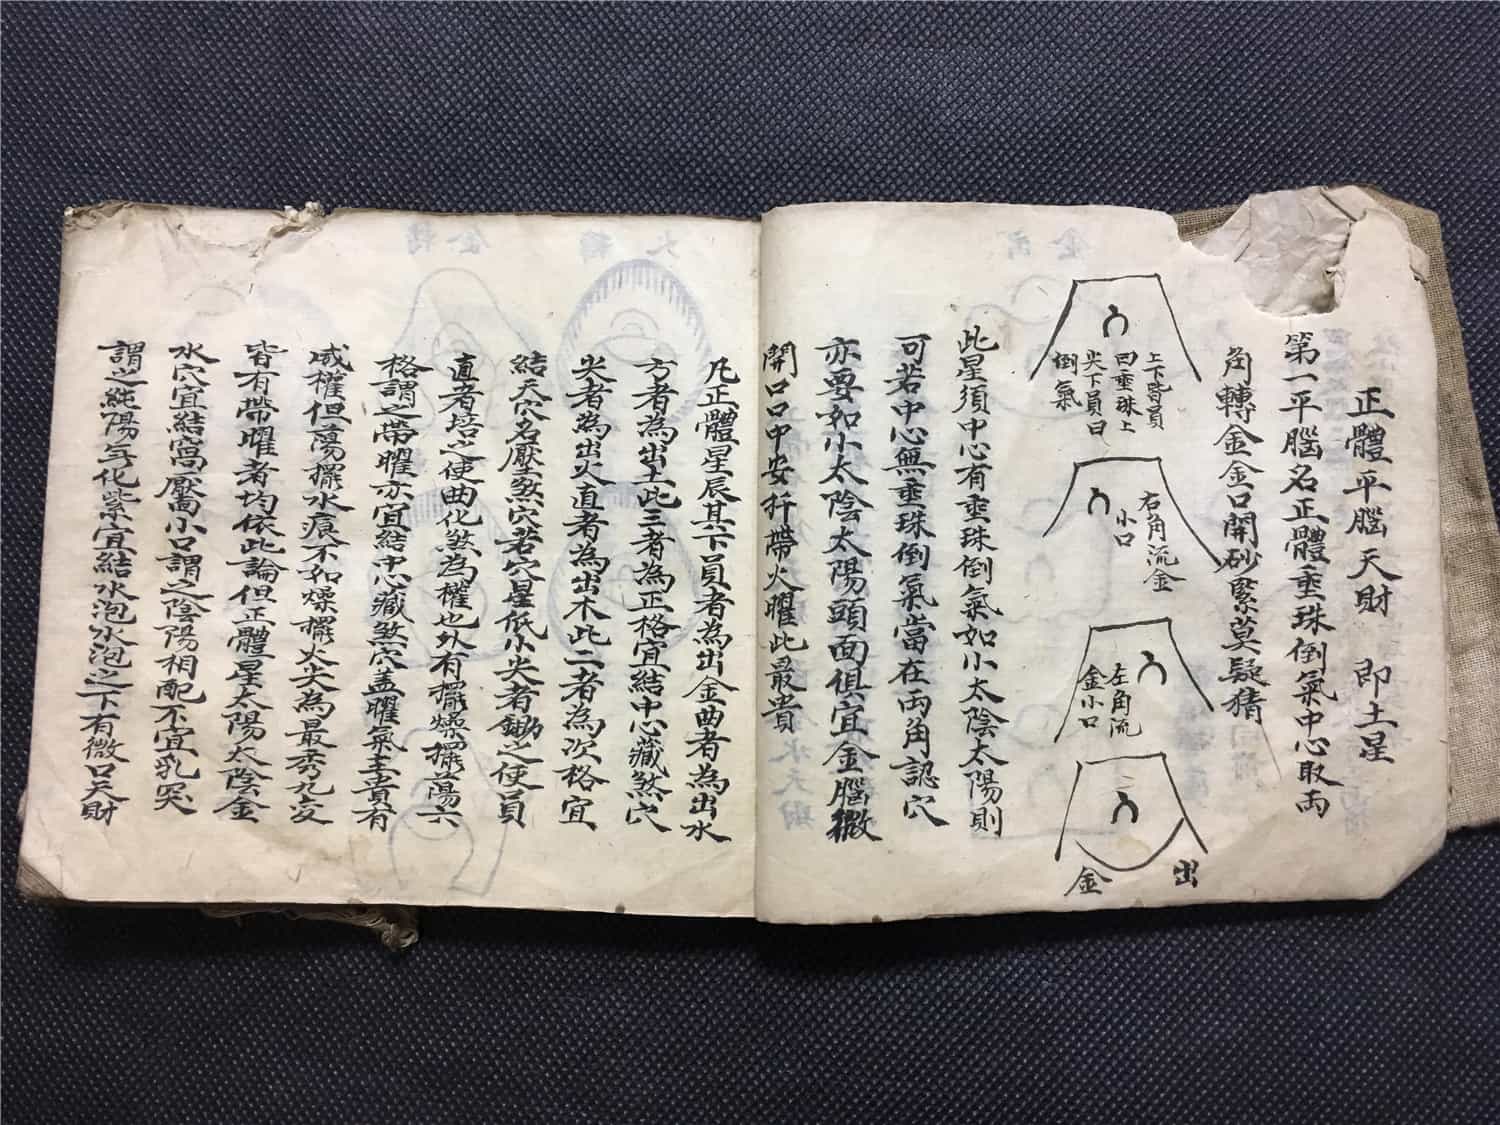 正體平腦天財　即土星
第一平腦名正體垂珠倒氣中心取両
角轉金金口開砂緊莫疑猜
上下皆員
曰垂珠上
尖下員曰
倒氣
右角流金
小口
左角流
金小口
出
金
此星須中心有垂珠倒氣如小太陰太陽則
可若中心無垂珠倒氣當在両角認穴
亦要如小太陰太陽頭面俱宜金腦微
開口口中安扦帶火曜此最貴
凡正體星辰其下員者為出金曲者為出水
方者為出土此三者為正格宜結中心藏煞穴
尖者為出火直者為出木此二者為次格宜
結天穴名壓煞穴若穴星低小尖者鋤之使員
直者培之使曲化煞為權也外有擺燥擺蕩六
格謂之帶曜亦宜結中心藏煞穴盖曜氣主貴有
威權但蕩擺水痕不如燥擺火尖為最秀九変
皆有帶曜者均依此論但正體星太陽太陰金
水穴宜結窩靨小口謂之陰陽相配不宜乳突
謂之純陽気化紫宜結水泡水泡之下有微口天財